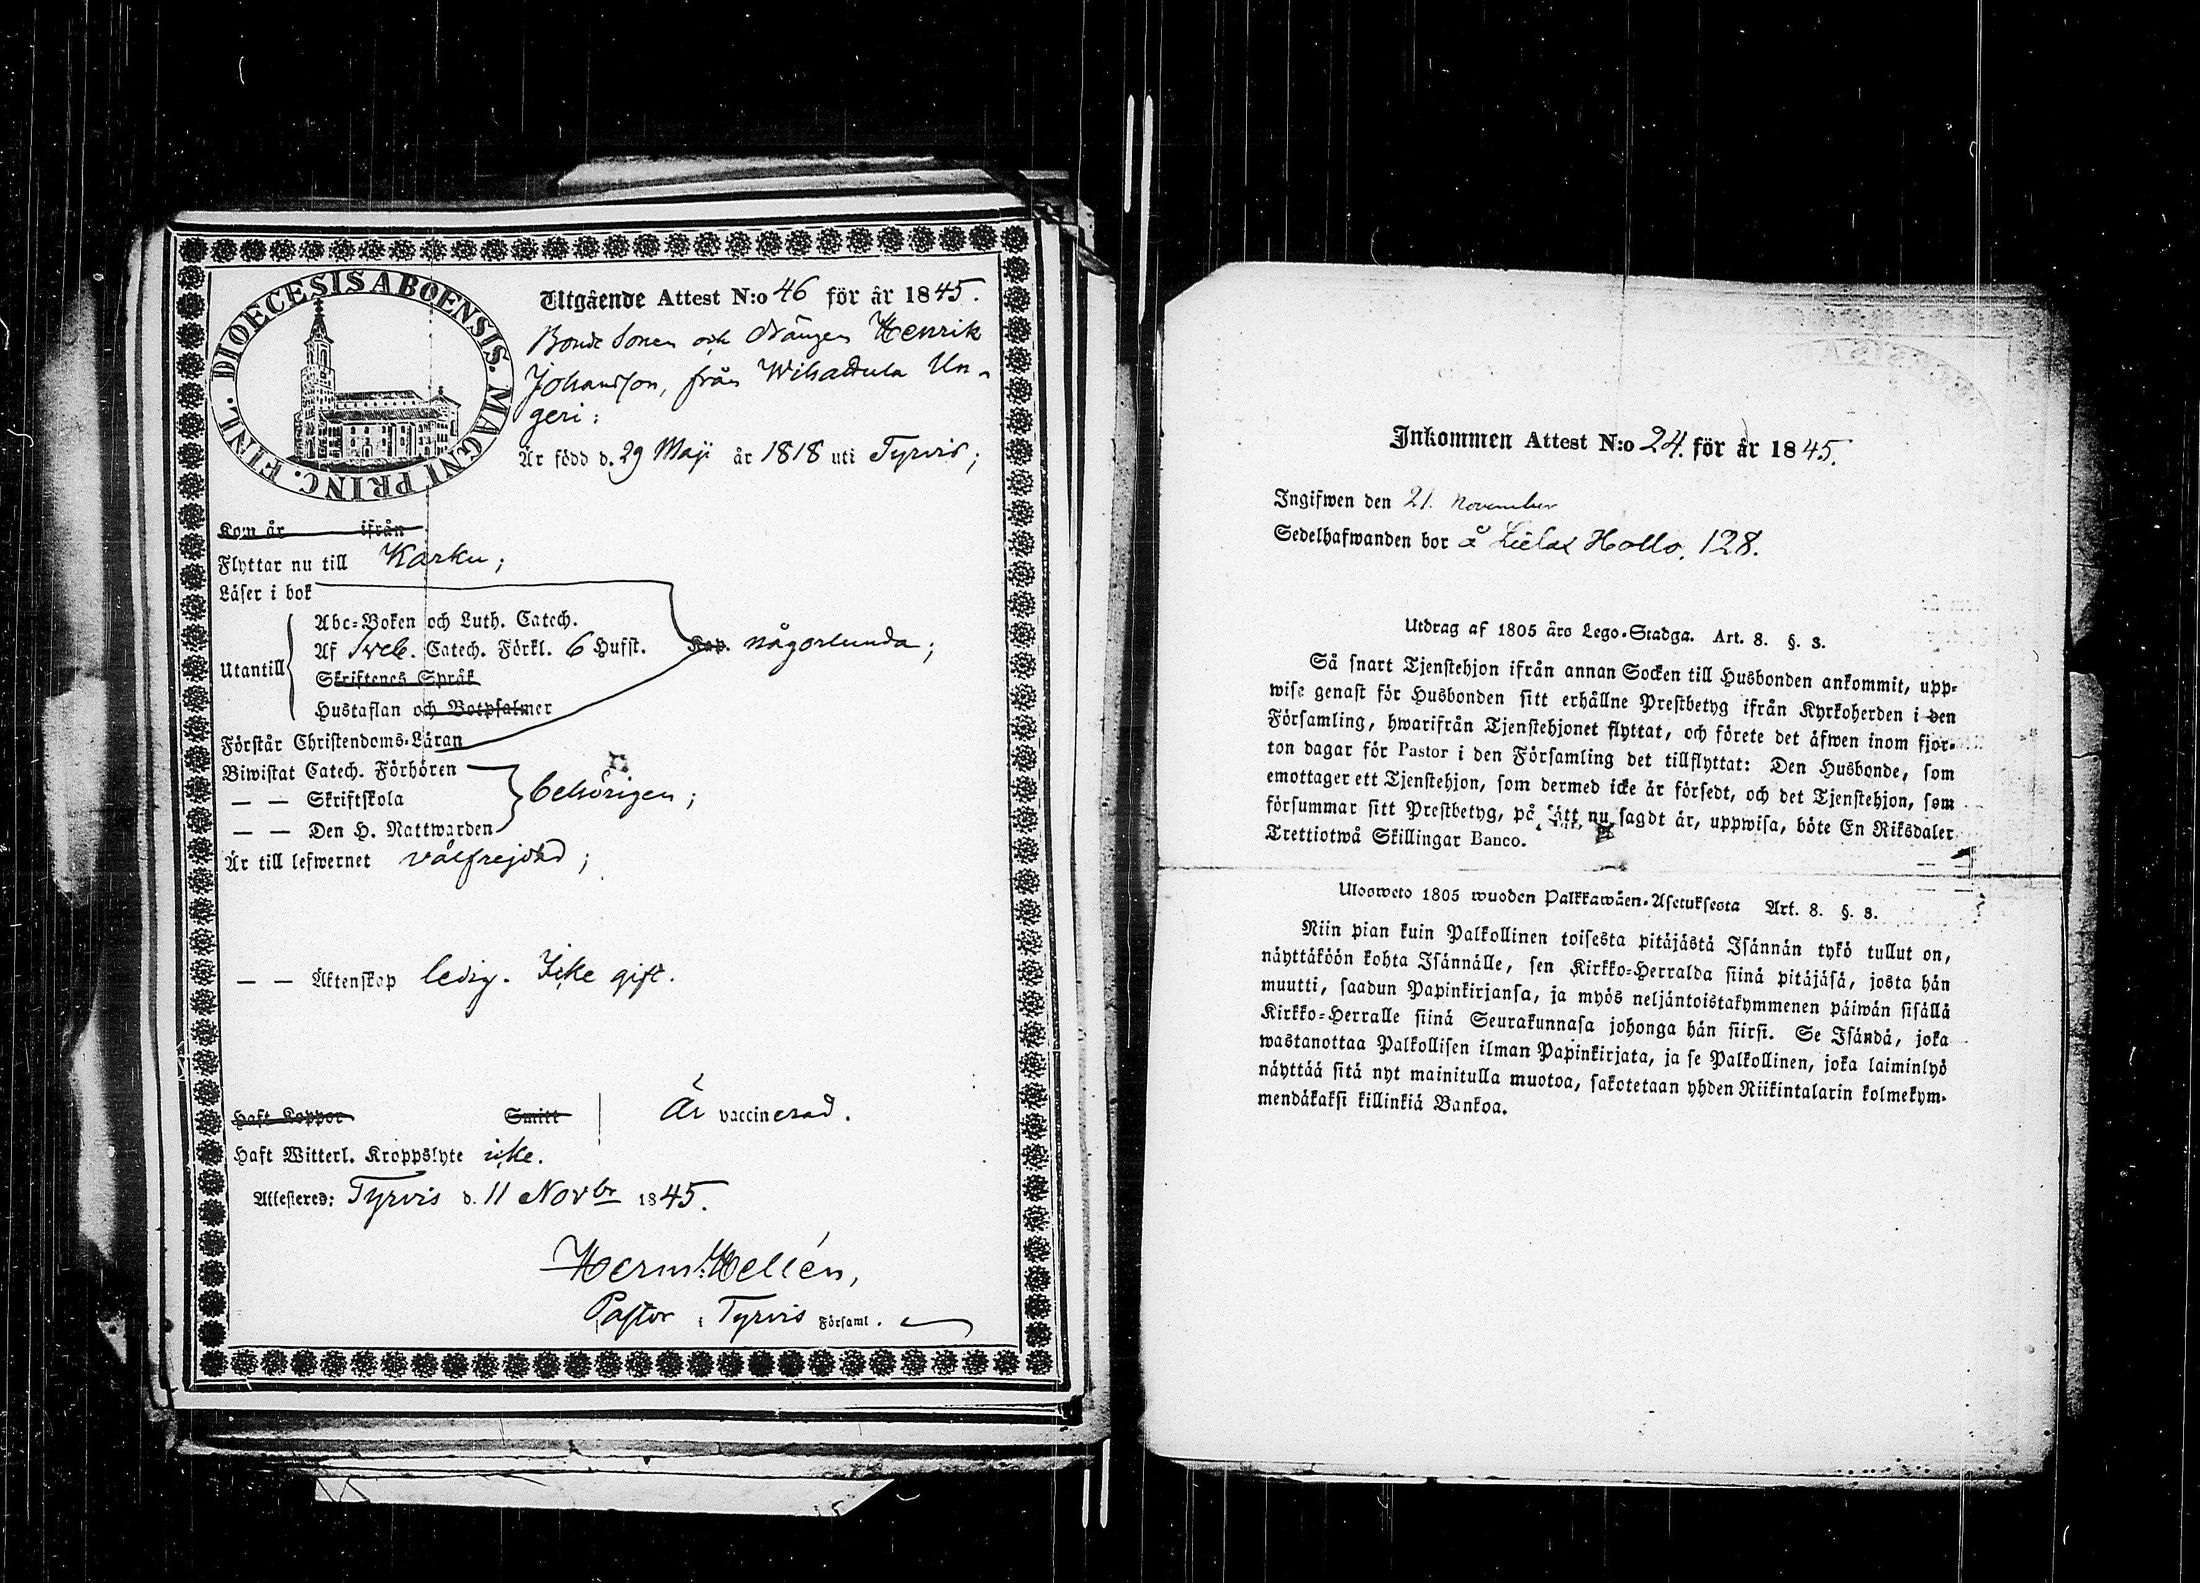 DIOECESIS ABOENSIS. MAGNI PRINC. FINL.
Utgående Attest N:o 46 för år 1845.
Bonde Sonen och drängen Henrik
Johansson, från Wihattula Un-
geri:
Är född d. 29 Maji år 1818 uti Tyrvis;
Kom år ifrån
Flyttar nu till Karku;
Läser i bok
Utantill
Abc-Boken och Luth. Catech.
Af Sveb. Catech. Förkl. 6 Hufst. någorlunda;
Skriftenes Språk
Hustaflan och Botpsalmer
Förstår Christendoms-Läran
Biwistat Catech. Förhören
— — Skriftskola behörigen;
— — Den H. Nattwarden
Är till lefwernet välfrejdad;
— — Äktenskap ledig. Icke gift.
Haft Koppor Smitt Är vaccinerad.
Haft Witterl. Kroppslyte icke.
Attesteres: Tyrvis d. 11 Novbr 1845.
Herm. Hellén,
Pastor i Tyrvis Församl.
Inkommen Attest N:o 24. för år 1845.
Ingifwen den 21. November
Sedelhafwanden bor å Hollo. 128.
Utdrag af 1805 års Lego-Stadga. Art. 8. §. 3.
Så snart Tjenstehjon ifrån annan Socken till Husbonden ankommit, upp-
wise genast för Husbonden sitt erhållne Prestbetyg ifrån Kyrkoherden i den
Församling, hwarifrån Tjenstehjonet flyttat, och förete det äfwen inom fjor-
ton dagar för Pastor i den Församling det tillflyttat: Den Husbonde, som
emottager ett Tjenstehjon, som dermed icke är försedt, och det Tjenstehjon, som
försummar sitt Prestbetyg, på sätt nu sagdt är, uppwisa, böte En Riksdaler
Trettiotwå Skillingar Banco.
Ulosweto 1805 wuoden Palkkawäen-Asetuksesta Art. 8. §. 3.
Niin pian kuin Palkollinen toisesta pitäjästä Isännän tykö tullut on,
näyttäköön kohta Isännälle, sen Kirkko-Herralda siinä pitäjäsä, josta hän
muutti, saadun Papinkirjansa, ja myös neljäntoistakymmenen päiwän sisällä
Kirkko-Herralle siinä Seurakunnasa johonga hän siirsi. Se Isändä, joka
wastanottaa Palkollisen ilman Papinkirjata, ja se Palkollinen, joka laiminlyö
näyttää sitä nyt mainitulla muotoa, sakotetaan yhden Riikintalarin kolmekym-
mendäkaksi killinkiä Bankoa.